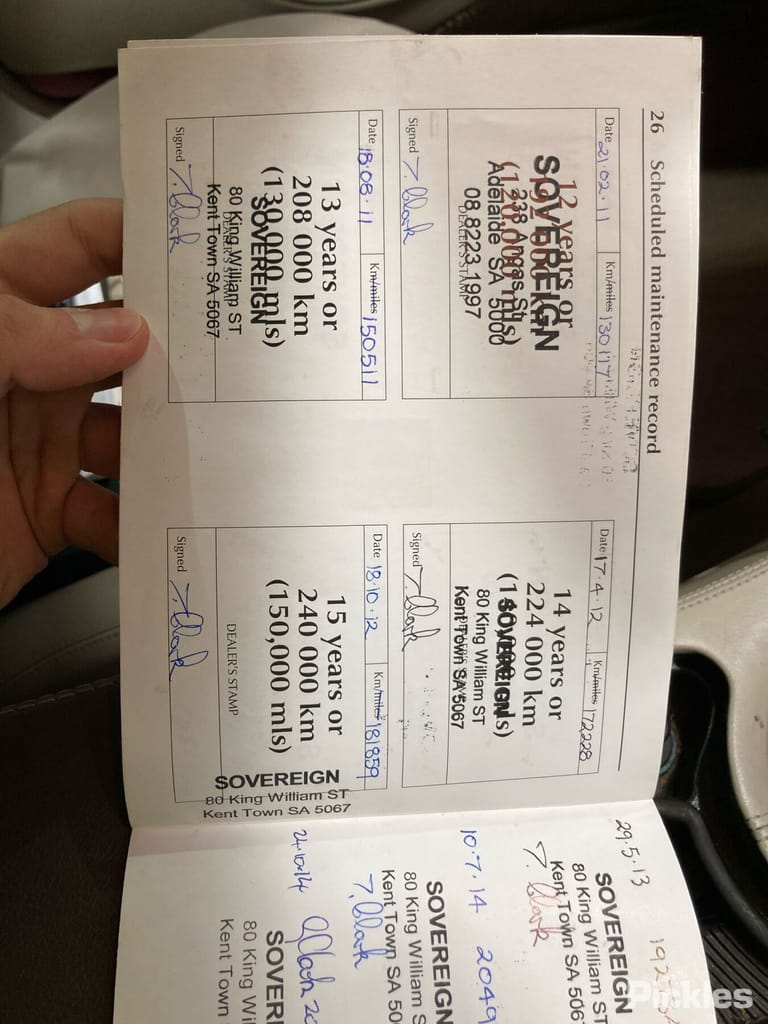 26 Scheduled maintenance record
Date 21·02·11 Km/miles
12 years or
SOVEREIGN
238 Angas St
Adelaide SA 5000
08 8223 1997
DEALER'S STAMP
Signed T. Clark
Date 17·4·12 Km/miles 172228
14 years or
224 000 km
SOVEREIGN
80 King William ST
Kent Town SA 5067
Signed T. Clark
Date 18·08·11 Km/miles 150511
13 years or
208 000 km
(130,000 mls)
SOVEREIGN
DEALER'S STAMP
80 King William ST
Kent Town SA 5067
Signed T. Clark
Date 18·10·12 Km/miles 181859
15 years or
240 000 km
(150,000 mls)
DEALER'S STAMP
SOVEREIGN
80 King William ST
Kent Town SA 5067
Signed T. Clark
29·5·13
SOVEREIGN
80 King William ST
Kent Town SA 506
T. Clark
10·7·14 2049
SOVEREIGN
80 King William S
Kent Town SA 50
T. Clark
24·10·14
SOVER
80 King Wil
Kent Town
Pickles